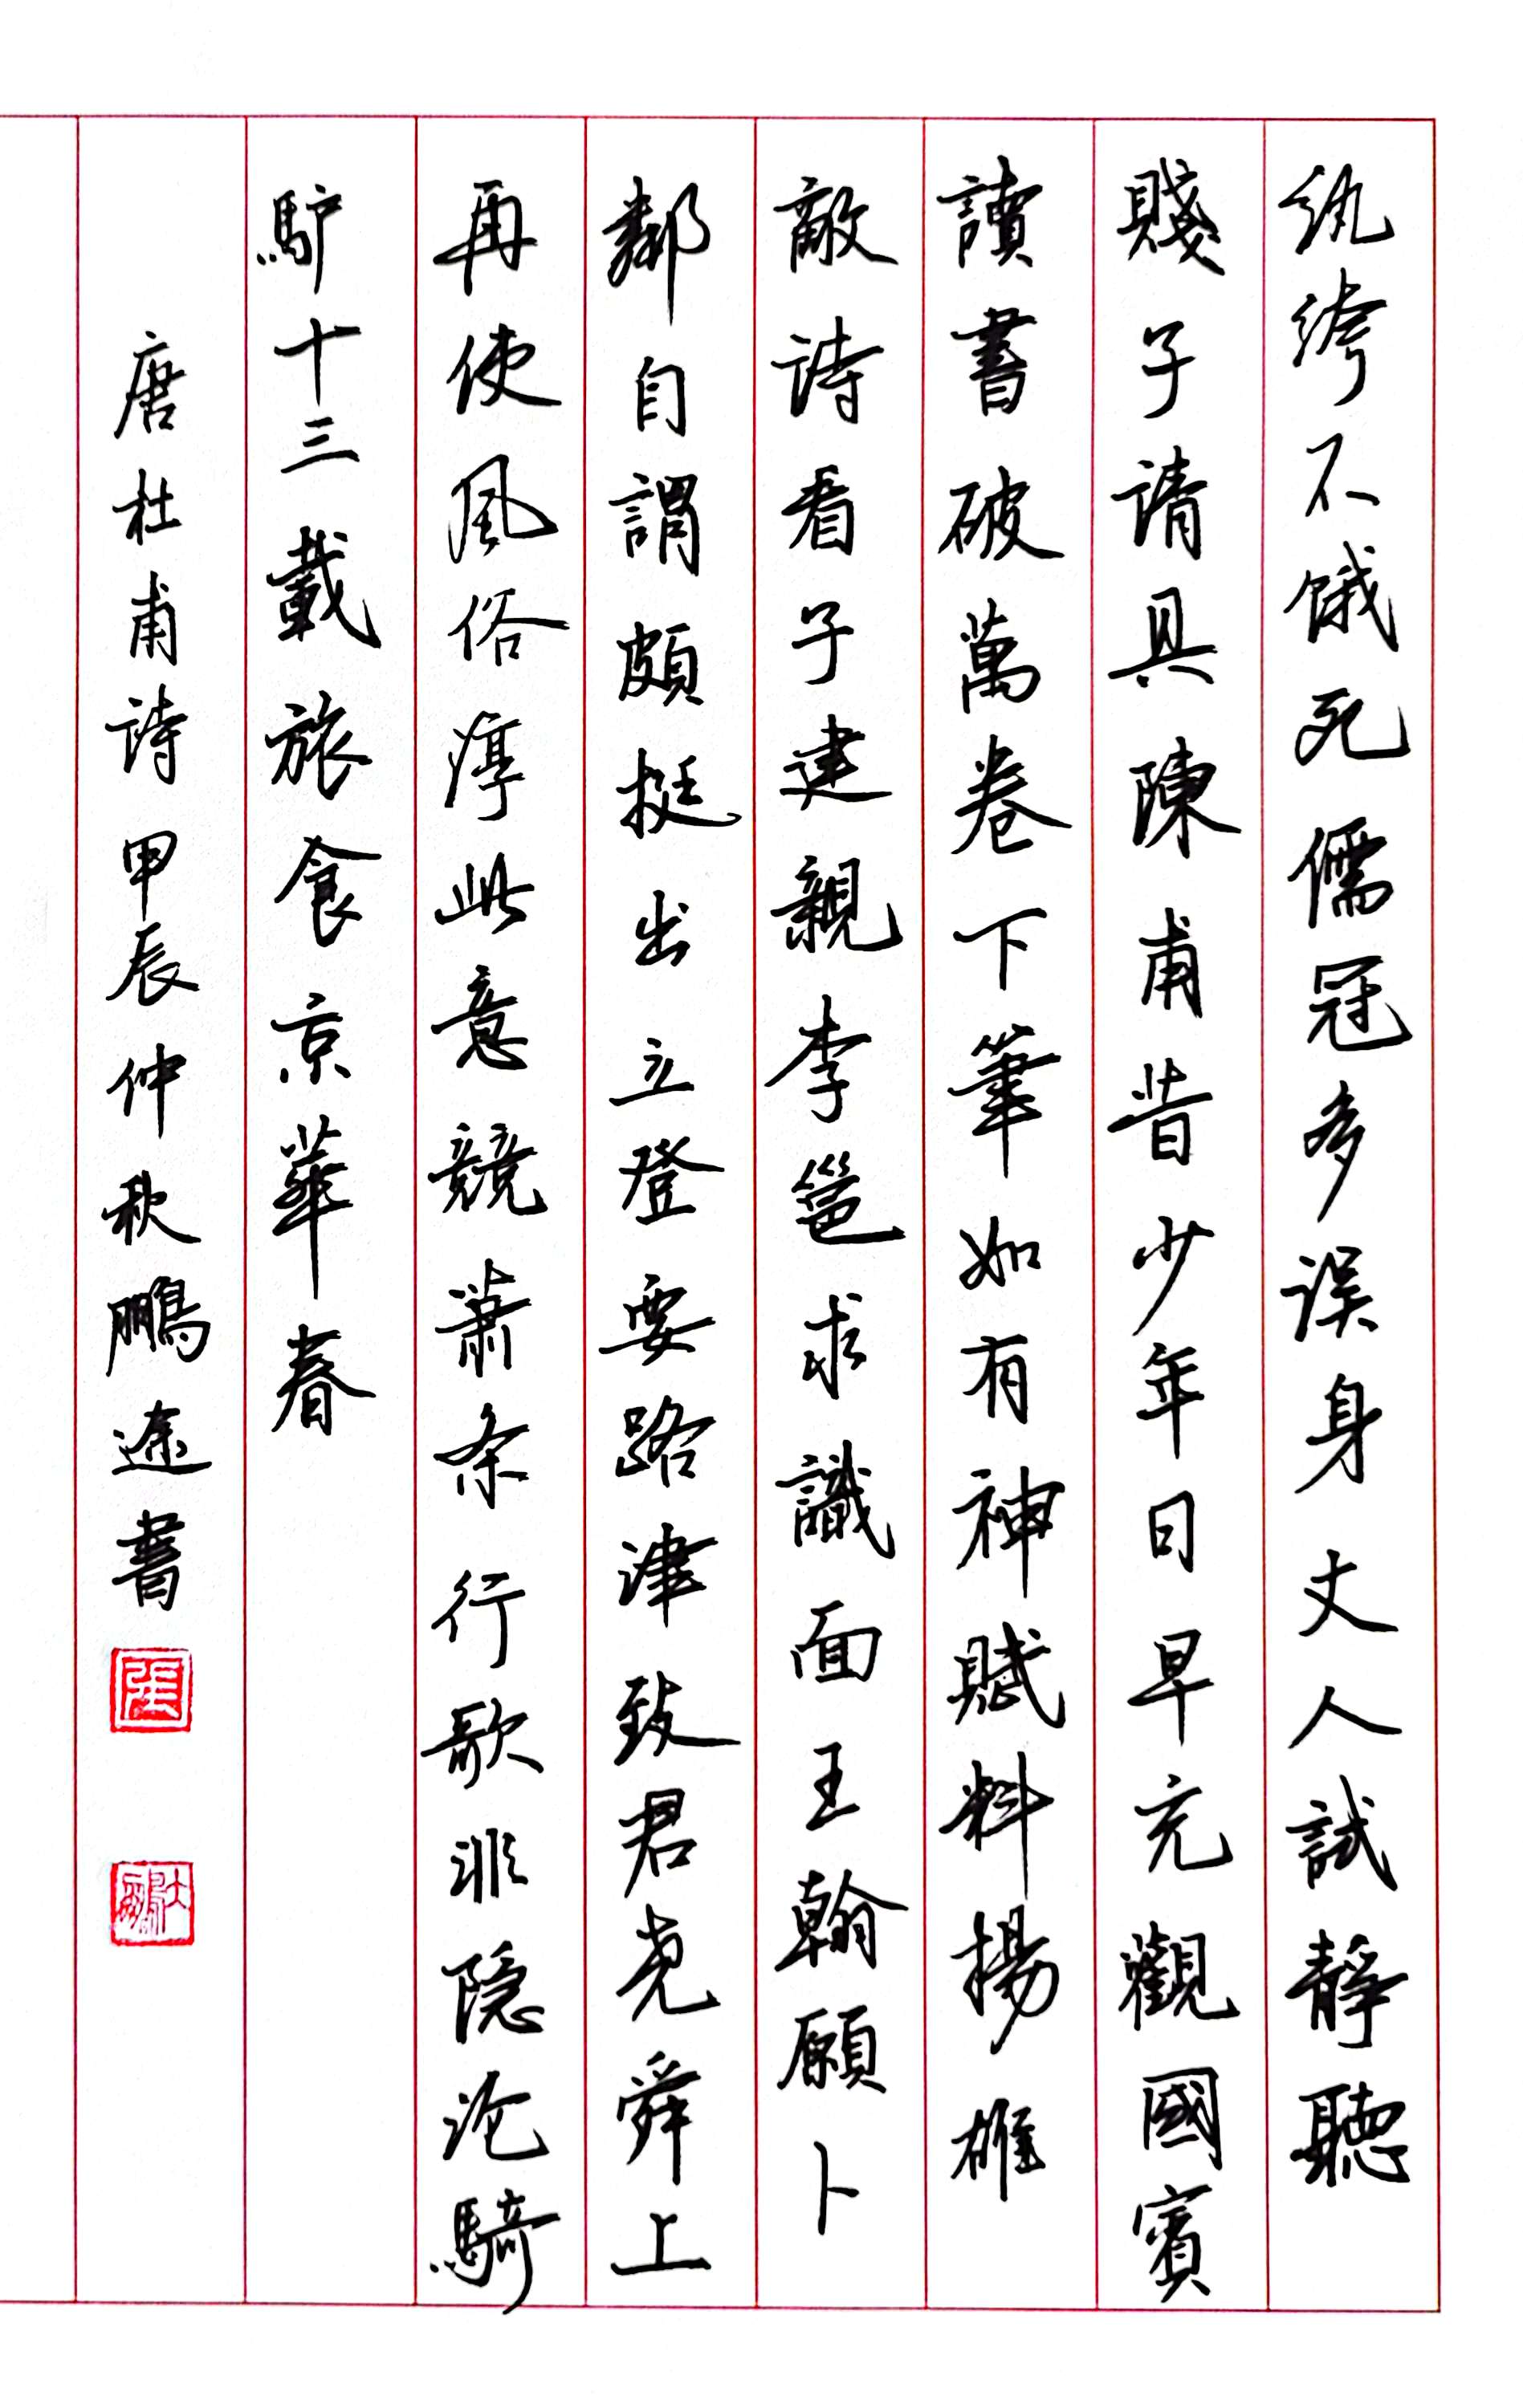 紈絝不饿死儒冠多误身丈人試靜聽
賤子请具陳甫昔少年日早充觀國賓
讀書破萬卷下筆如有神賦料揚雄
敵詩看子建親李邕求識面王翰願卜
鄰自謂頗挺出立登要路津致君尭舜上
再使風俗淳此意競蕭条行歌非隐沦騎
馿十三載旅食京華春
唐杜甫詩甲辰仲秋鵬途書